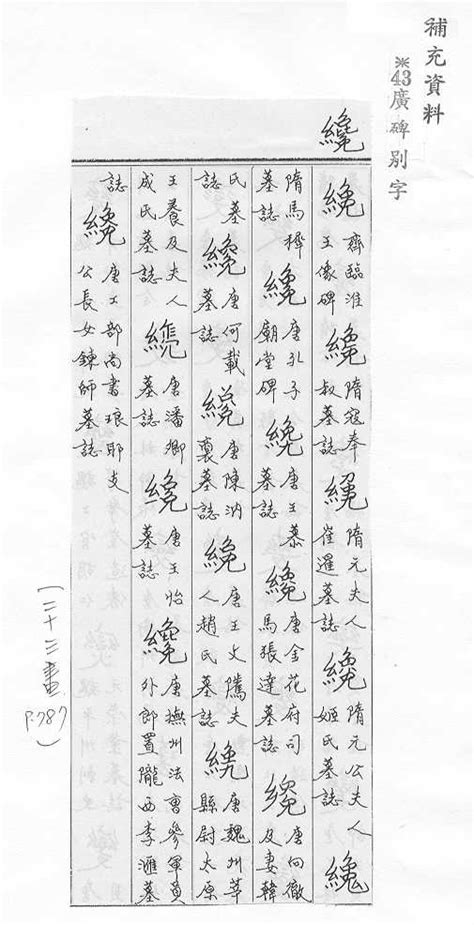 補充資料
※43廣碑別字
纔
齊臨淮王像碑 隋寇奉叔墓誌 隋元夫人崔暹墓誌 隋元公夫人姬氏墓誌
隋馬稺墓誌 唐孔子廟堂碑 唐王慕墓誌 唐金花府司馬張達墓誌 唐向徹及妻韓
氏墓誌 唐何載墓誌 唐陳汭墓誌 唐王文騭夫人趙氏墓誌 唐魏州莘縣尉太原
王養及夫人成氏墓誌 唐潘卿墓誌 唐王怡墓誌 唐撫州法曹參軍員外郎置隴西李滙墓
誌 唐工部尚書琅耶支公長女鍊師墓誌
(二十三畫 P.787)